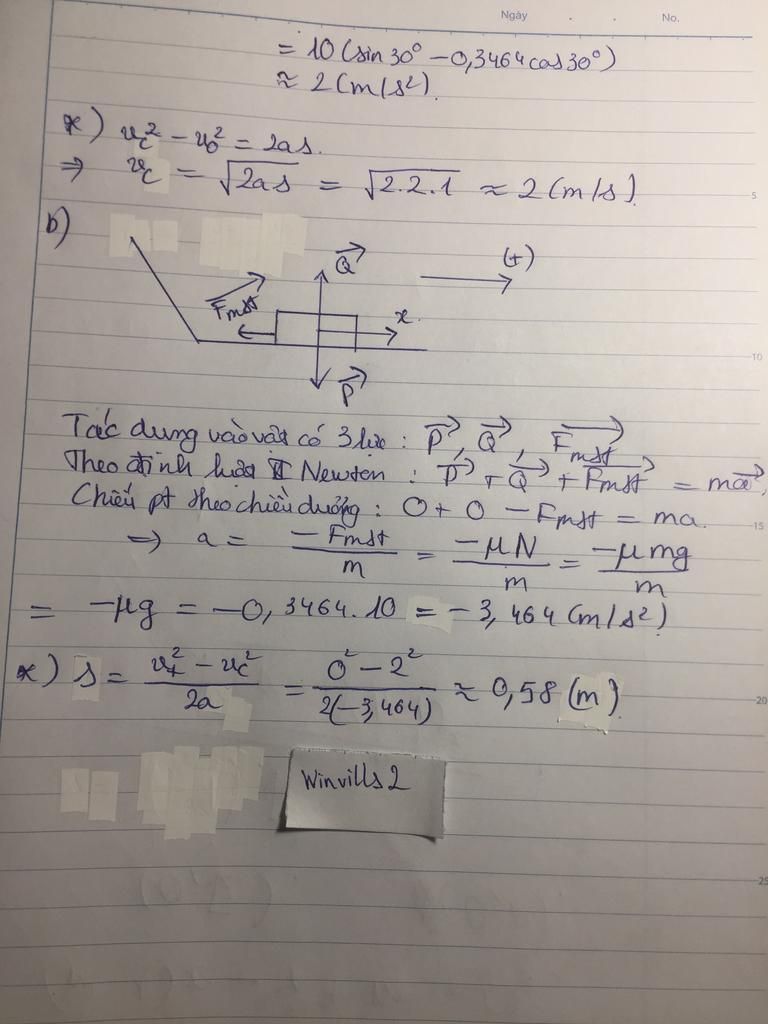 Ngày . . No.
= 10 (sin 30° – 0,3464 cos 30°)
≈ 2 (m/s²).
*) v_c² – v_0² = 2as.
⇒ v_c = √(2as) = √(2.2.1) ≈ 2 (m/s)
5
b)
Q⃗
(+)
F⃗mst
x
10
P⃗
Tác dung vào vật có 3 lực : P⃗, Q⃗, F⃗mst
Theo định luật II Newton : P⃗ + Q⃗ + F⃗mst = ma⃗,
Chiếu pt theo chiều dương : 0 + 0 – Fmst = ma.
15
⇒ a = –Fmst/m = –μN/m = –μmg/m
= –μg = –0,3464.10 = –3,464 (m/s²)
*) s = (v_t² – v_c²)/2a = (0² – 2²)/2(–3,464) ≈ 0,58 (m)
20
Winvills 2
25